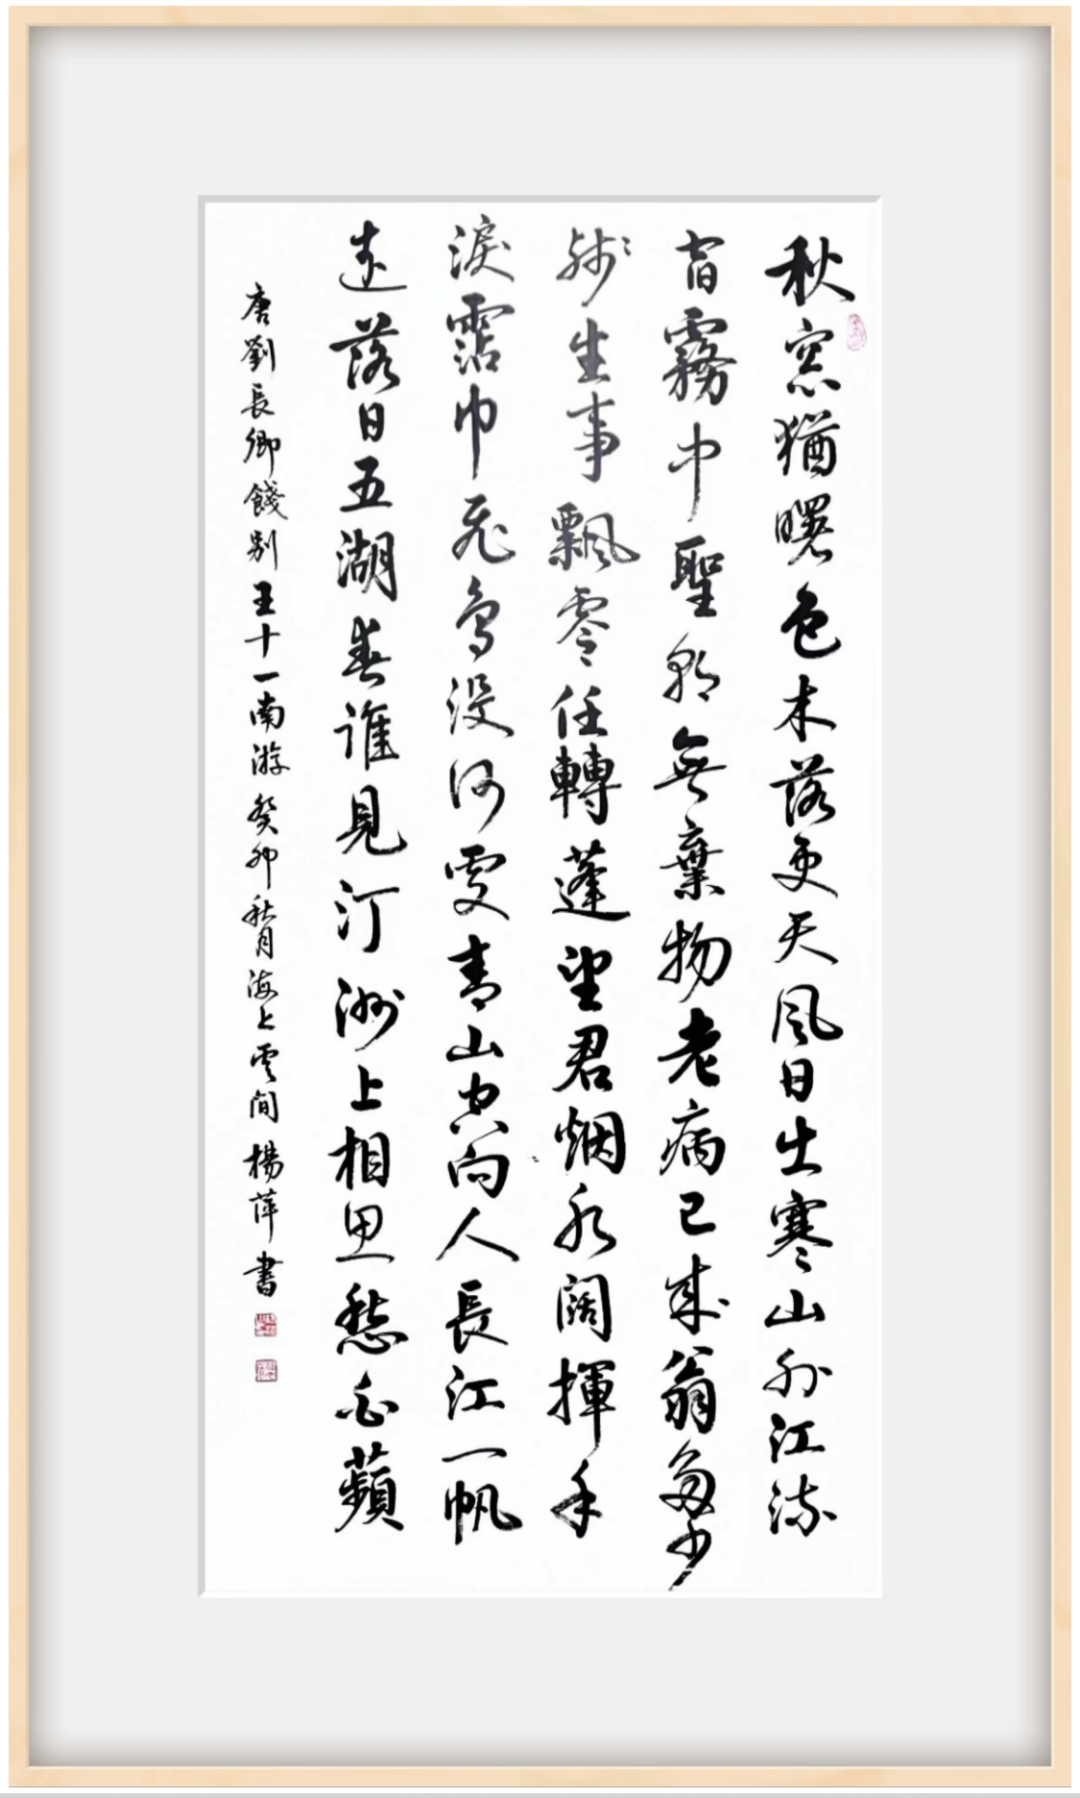 秋窓猶曙色木落更天風日出寒山外江流
宿霧中聖朝無棄物老病已成翁多少
殘生事飄零任轉蓬望君烟水闊揮手
淚霑巾飛鳥没何處青山空向人長江一帆
遠落日五湖春誰見汀洲上相思愁白蘋
唐劉長卿餞别王十一南游癸卯秋月海上雲间楊萍書